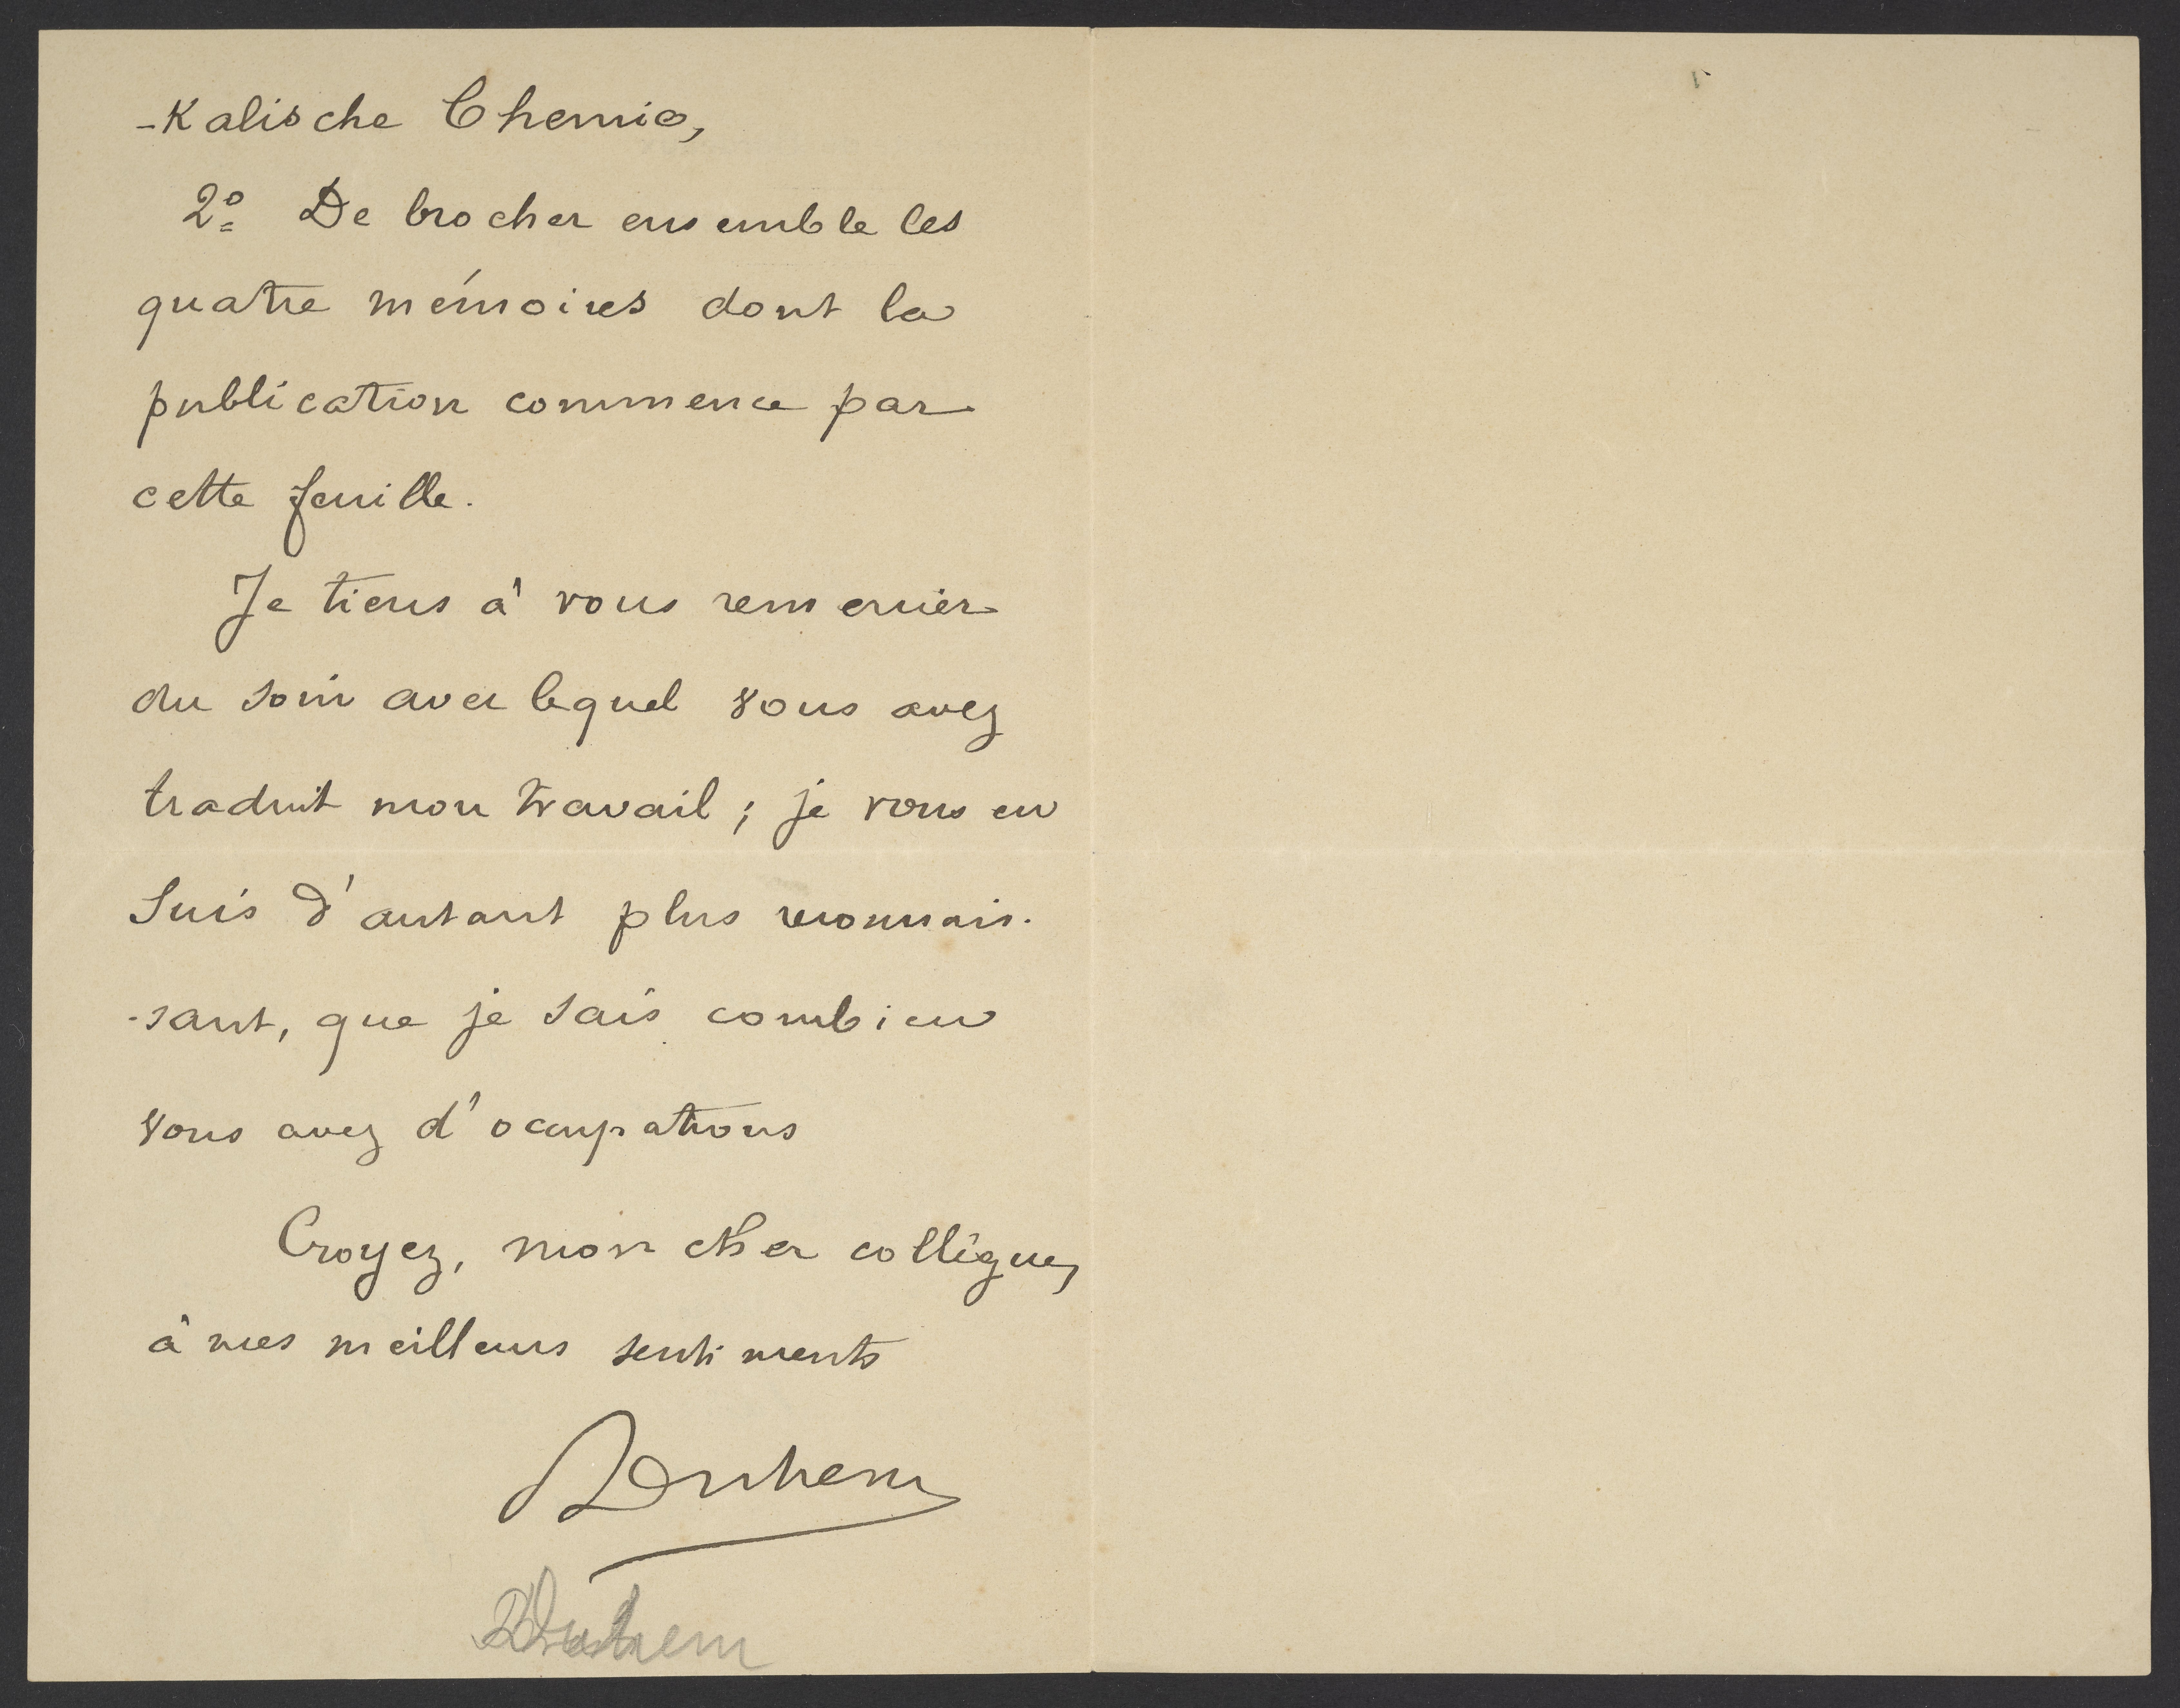 -kalische Chemie,
2º De brocher ensemble les
quatre mémoires dont la
publication commence par
cette feuille.
Je tiens à vous remercier
du soin avec lequel vous avez
traduit mon travail ; je vous en
suis d'autant plus reconnais-
-sant, que je sais combien
vous avez d'occupations
Croyez, mon cher collègue,
à mes meilleurs sentiments
P Duhem
P Duhem